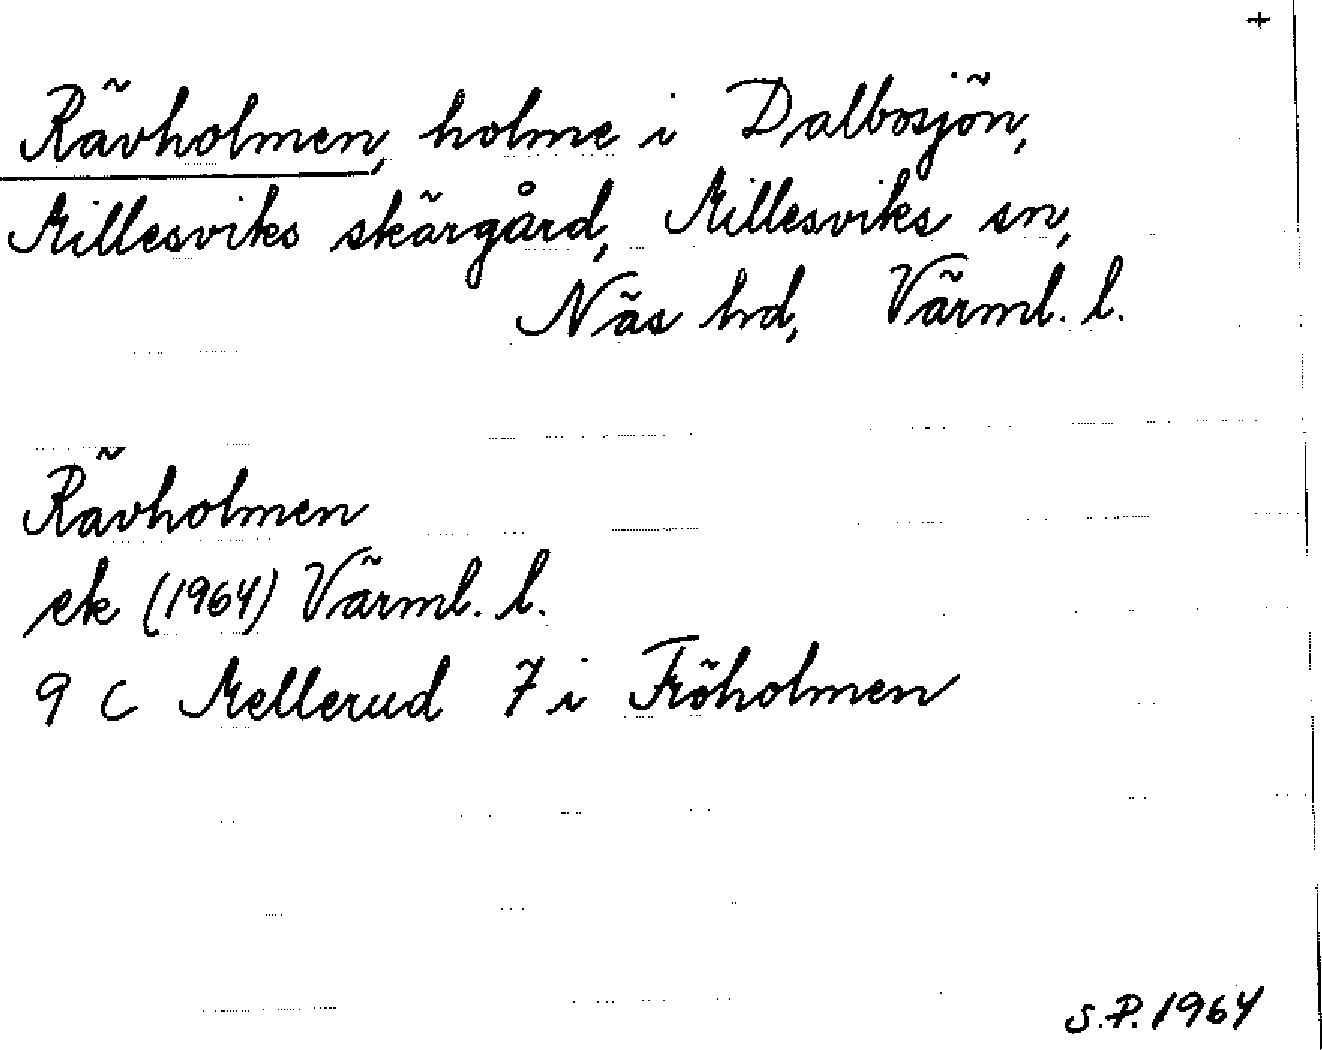 +
Rävholmen, holme i Dalbosjön,
Millesviks skärgård, Millesviks sn,
Näs hd, Värml. l.
Rävholmen
ek (1964) Värml. l.
9 C Mellerud 7 i Fröholmen
S.P. 1964